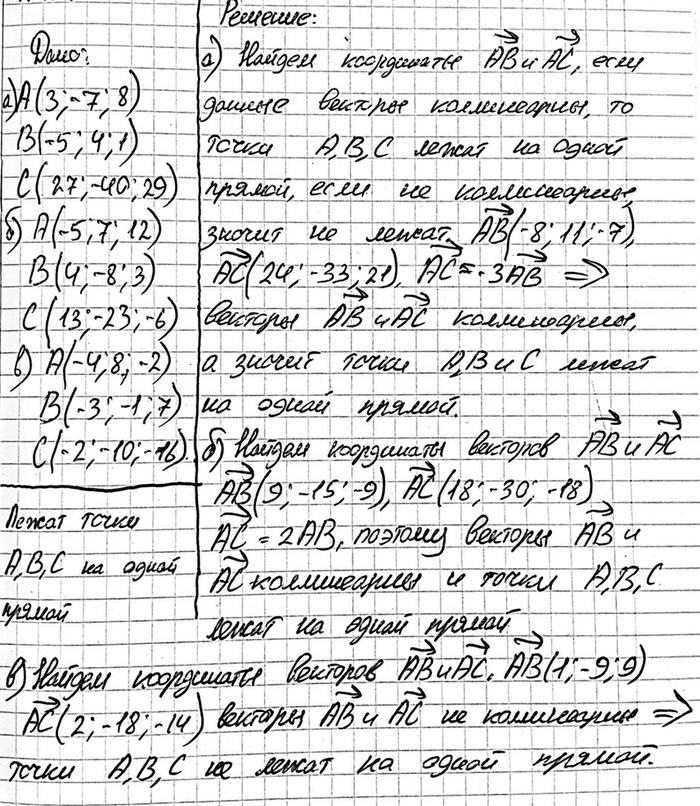 Решение:
Дано:
а) A(3;-7;8)
B(-5;4;1)
C(27;-40;29)
б) A(-5;7;12)
B(4;-8;3)
C(13;-23;-6)
в) A(-4;8;-2)
B(-3;-1;7)
C(-2;-10;-16).
Лежат точки
A,B,C на одной
прямой
а) Найдем координаты AB и AC, если
данные векторы коллинеарны, то
точки A,B,C лежат на одной
прямой, если не коллинеарны,
значит не лежат. AB(-8;11;-7),
AC(24;-33;21), AC=-3AB ⇒
векторы AB и AC коллинеарны,
а значит точки A,B и C лежат
на одной прямой.
б) Найдем координаты векторов AB и AC
AB(9;-15;-9), AC(18;-30;-18)
AC = 2AB, поэтому векторы AB и
AC коллинеарны и точки A,B,C
лежат на одной прямой.
в) Найдем координаты векторов AB и AC. AB(1;-9;9)
AC(2;-18;-14) векторы AB и AC не коллинеарны ⇒
точки A,B,C не лежат на одной прямой.